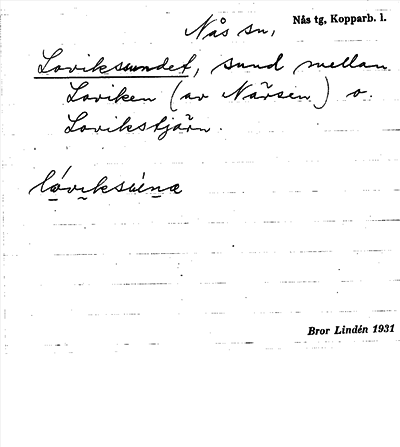 Nås sn,
Nås tg, Kopparb. l.
Lovikssundet, sund mellan
Loviken (av Närsen) o.
Lovikstjärn.
Bror Lindén 1931